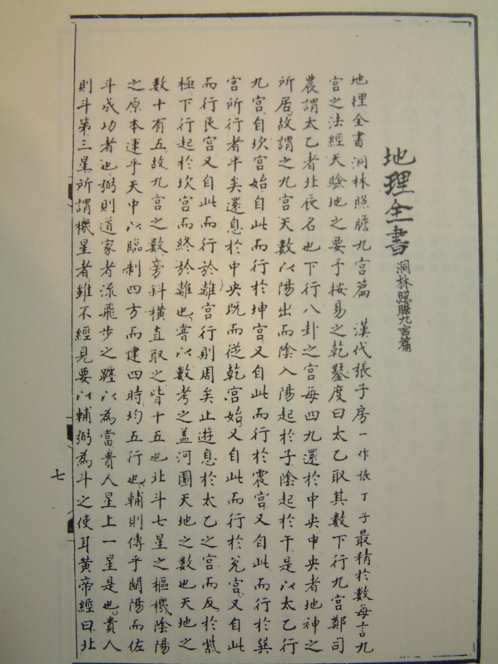 地理全書 洞林照膽九宮篇
地理全書洞林照膽九宮篇 漢代張子房一作張丁子最精於數每言九
宮之法經天驗地之要予按易之乾鑿度曰太乙取其數下行九宮鄭司
農謂太乙者北辰名也下行八卦之宮每四九還於中央中央者地神之
所居故謂之九宮天數以陽出而陰入陽起於子陰起於午是以太乙行
九宮自坎宮始自此而行於坤宮又自此而行於震宮又自此而行於巽
宮所行者半矣還息於中央既而從乾宮始又自此而行於兌宮又自此
而行艮宮又自此而行於離宮行則周矣止遊息於太乙之宮而反於紫
極下行起於坎宮而終於離也嘗以數考之蓋河圖天地之數也天地之
數十有五故九宮之數旁斜橫直取之皆十五也北斗七星之樞機陰陽
之原本運乎天中以臨制四方而建四時均五行也輔則傅乎闓陽而佐
斗成功者也弼則道家者流飛步之躔以為當貴人星上一星是也貴人
則斗第三星所謂機星者雖不經見要以輔弼為斗之使耳黃帝經曰北
七